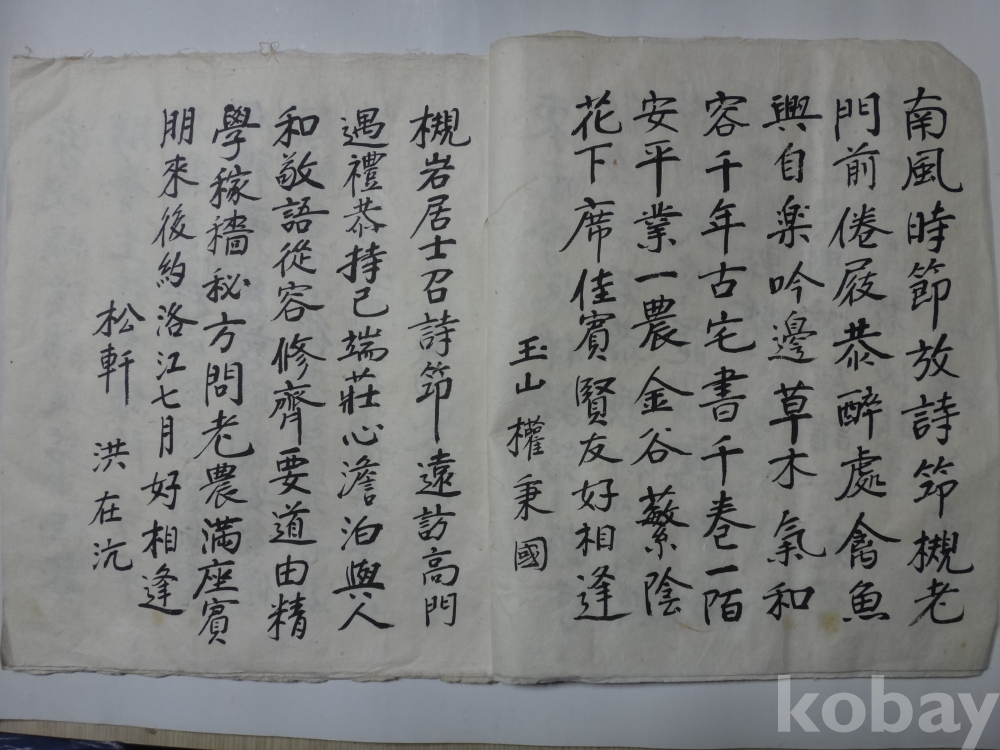 南風時節放詩筇槻老
門前倦屐恭醉處禽魚
興自楽吟邊草木氣和
容千年古宅書千卷一陌
安平業一農金谷蘩陰
花下席佳賓賢友好相逢
玉山 權秉國
槻岩居士召詩筇遠訪高門
遇禮恭持己端莊心澹泊與人
和敬語從容修齊要道由精
學稼穡秘方問老農滿座賓
朋來後約洛江七月好相逢
松軒 洪在沆
kobay